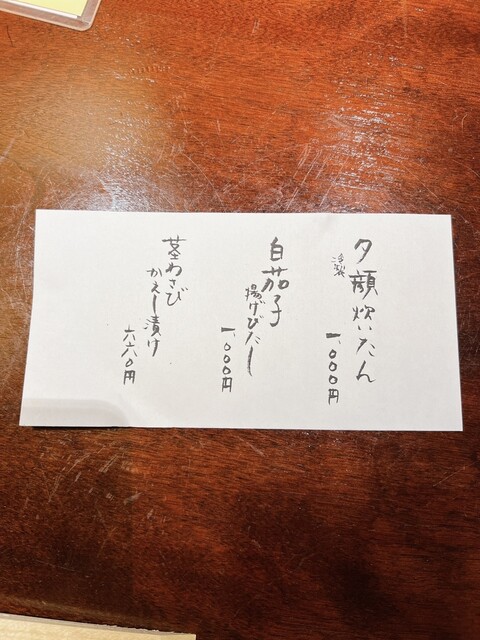 夕顔炊いたん
冷製
一、000円
白茄子
揚げびたし
一、000円
茎わさび
かえし漬け
六六0円